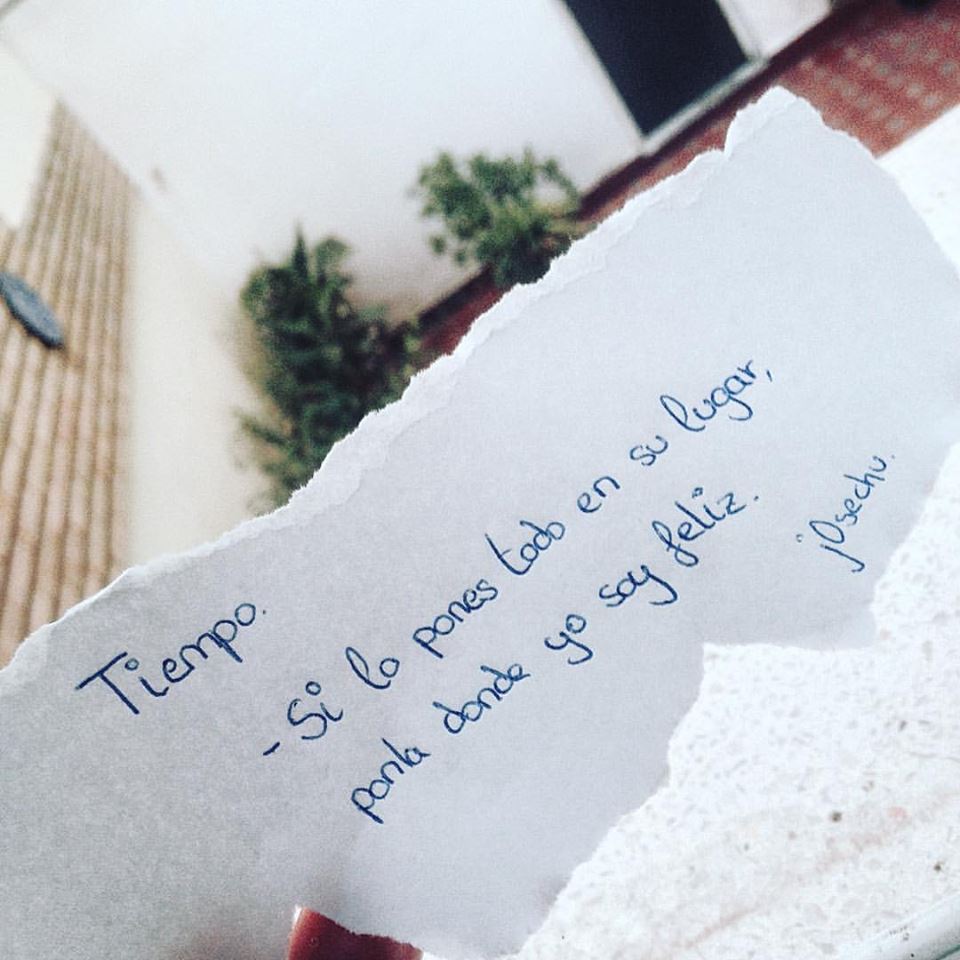 Tiempo.
- Si lo pones todo en su lugar,
ponla donde yo soy feliz.
jOsechu.